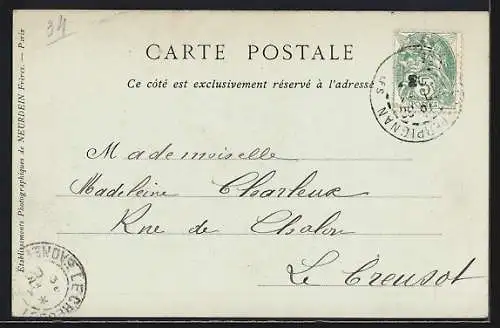 34
CARTE POSTALE
Ce côté est exclusivement réservé à l'adresse
Mademoiselle
Madeleine Charleux
Rue de Chalon
Le Creusot
Etablissements Photographiques de NEURDEIN Frères. — Paris
PERPIGNAN
LE CREUSOT